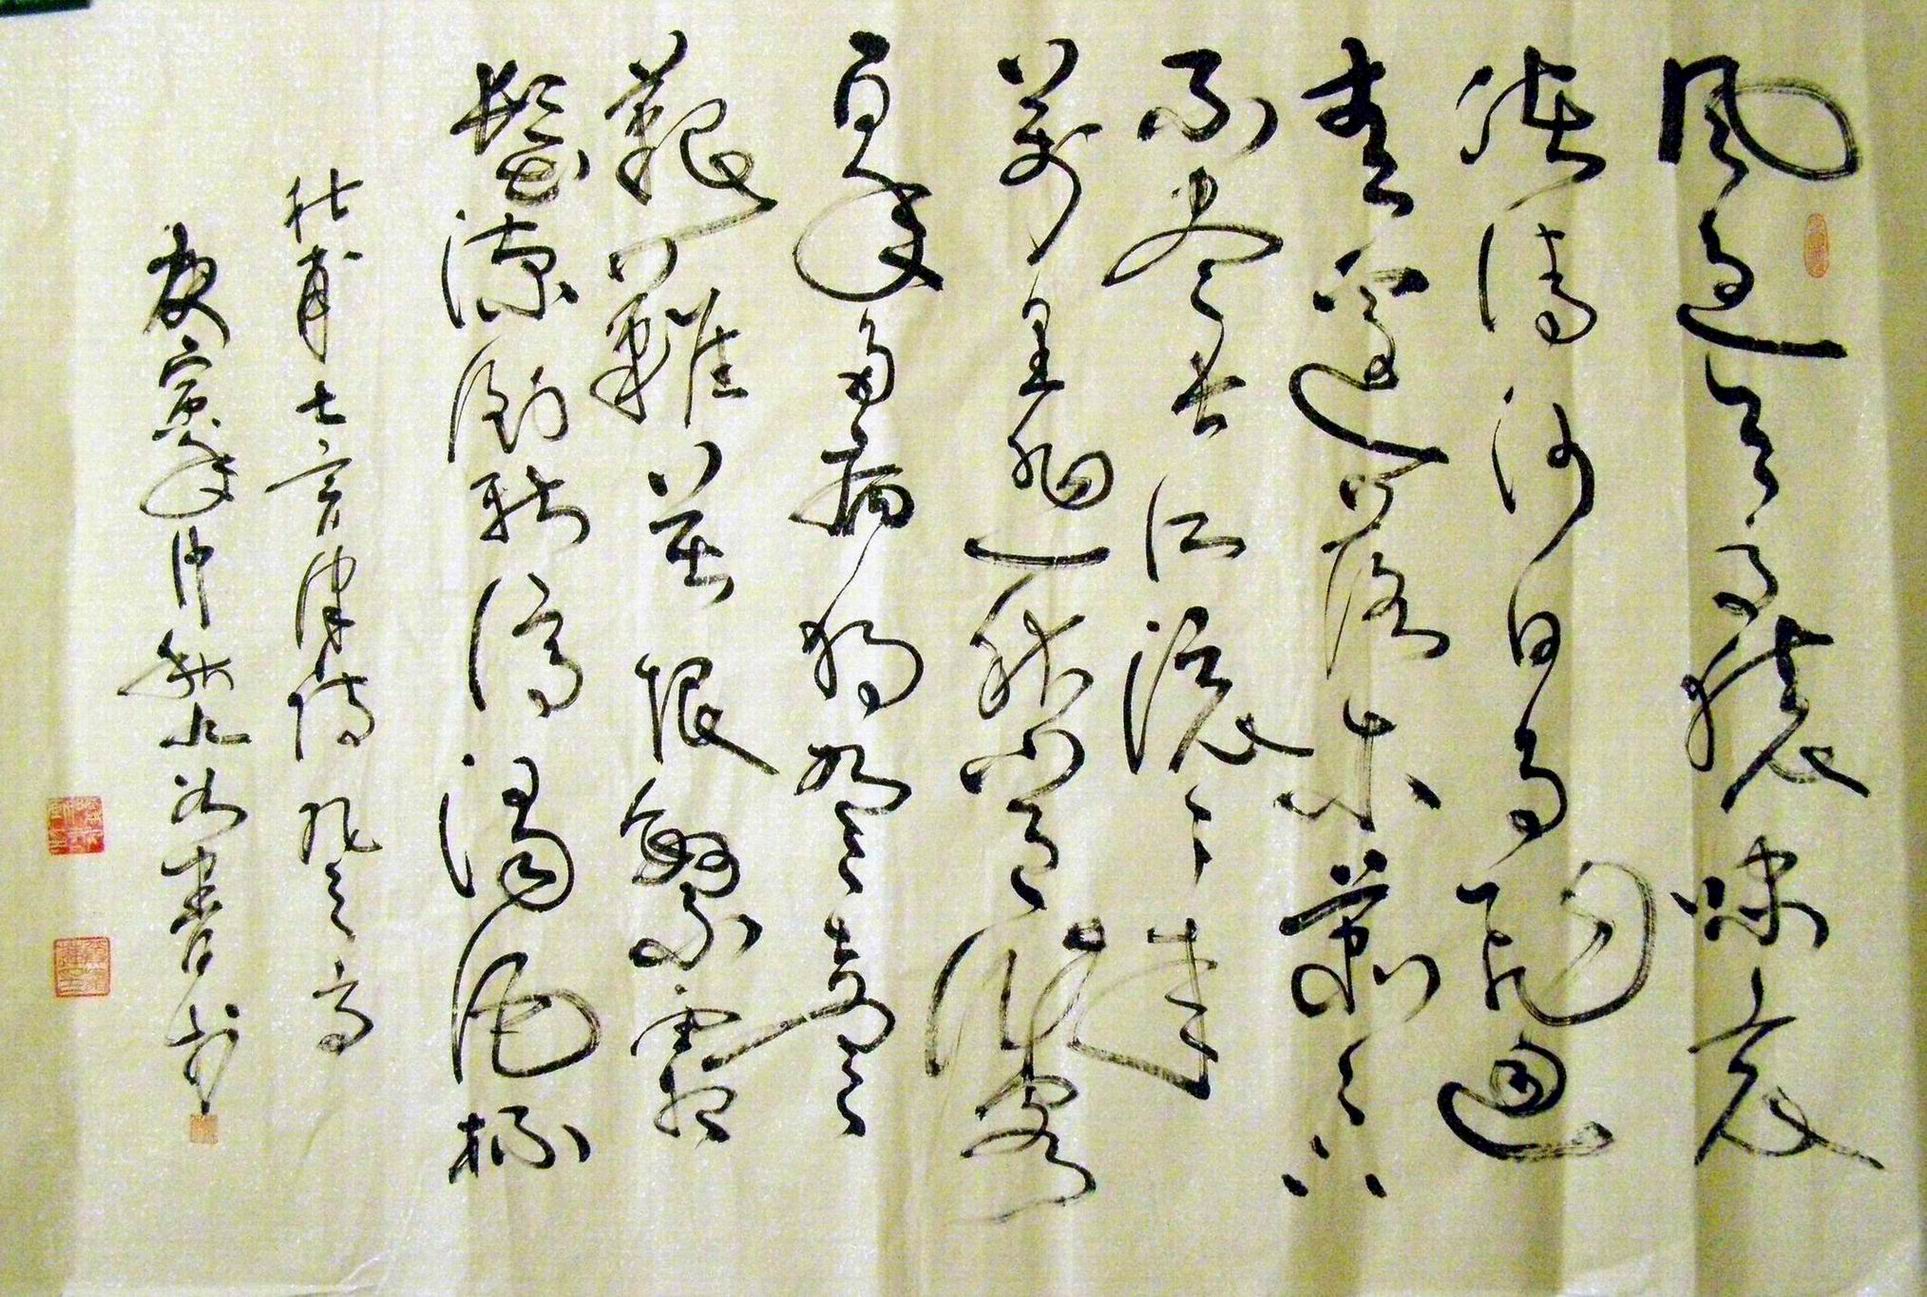 風急天高猿嘯哀
渚清沙白鳥飛迴
無邊落木蕭蕭下
不盡長江滾滾來
萬里悲秋常作客
百年多病獨登臺
艱難苦恨繁霜
鬢潦倒新停濁酒杯
杜甫七言律詩登高
庚寅年仲秋書